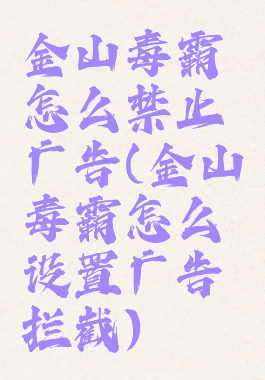 金山毒霸
怎么禁止
广告(金山
毒霸怎么
设置广告
拦截)